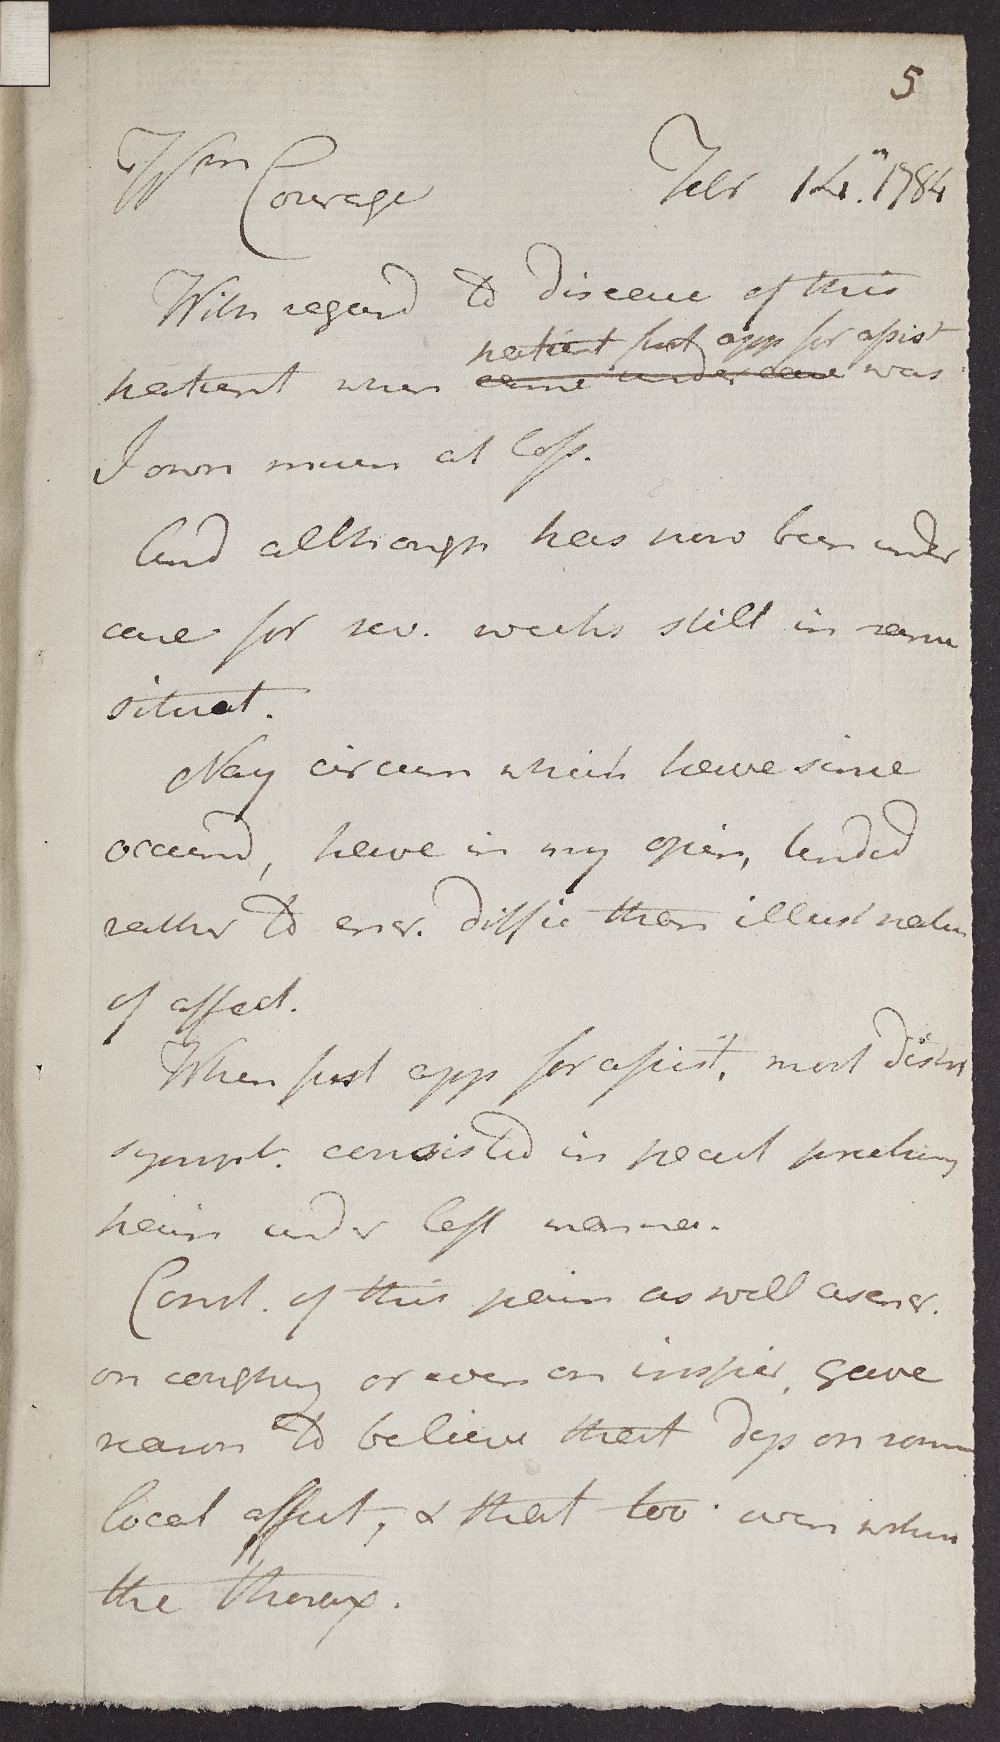 5
Wm Courage Febr 14.th 1784
With regard to disease of this
patient first app for assist
patient when came under care was
I own much at loss.
And although has now been under
care for sev. weeks still in same
situat.
Nay circum which have since
occurred, have in my opin, tended
rather to encr. diffic than illust natur
of affect.
When first app for assist, most distr
sympt. consisted in pecul pricking
pain under left mamma.
Const. of this pain as well as encr.
on coughing or even on inspir, gave
reason to believe that dep on some
local affect, & that too even within
the thorax.